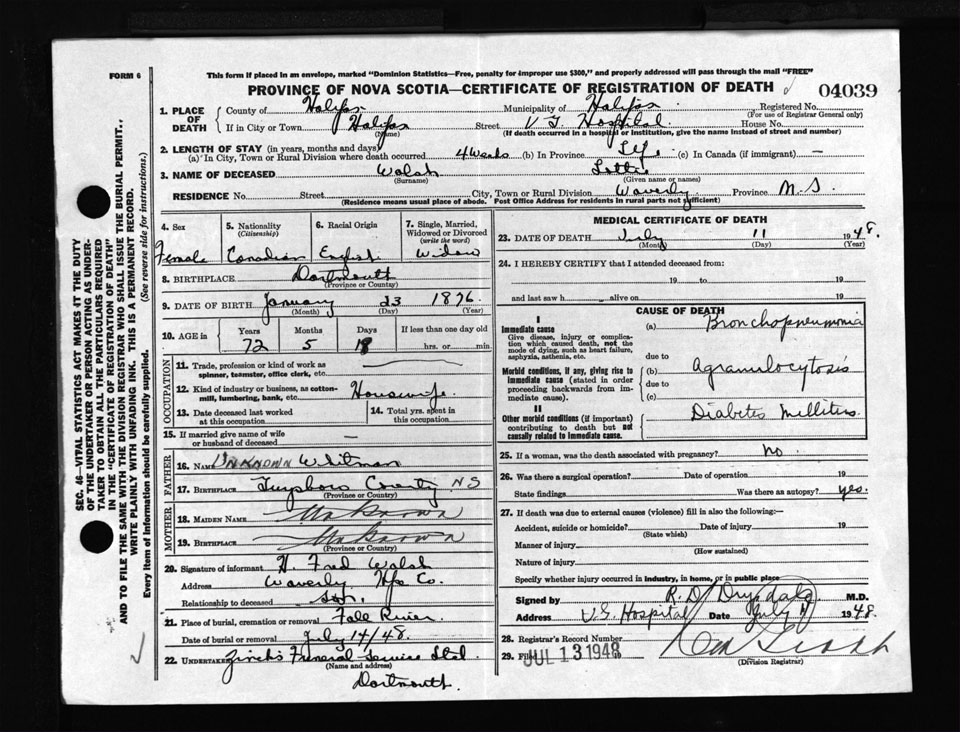 FORM 6
This form if placed in an envelope, marked "Dominion Statistics—Free, penalty for improper use $300," and properly addressed will pass through the mail "FREE"
PROVINCE OF NOVA SCOTIA—CERTIFICATE OF REGISTRATION OF DEATH
04039
1. PLACE OF DEATH
County of Halifax Municipality of Halifax Registered No.
(For use of Registrar General only)
If in City or Town Halifax Street V G Hospital House No.
(Name) (If death occurred in a hospital or institution, give the name instead of street and number)
2. LENGTH OF STAY (in years, months and days)
(a) In City, Town or Rural Division where death occurred 4 Weeks (b) In Province Life (c) In Canada (if immigrant) —
3. NAME OF DECEASED Walsh Lottie
(Surname) (Given name or names)
RESIDENCE No. Street City, Town or Rural Division Waverly Province N.S.
(Residence means usual place of abode. Post Office Address for residents in rural parts not sufficient)
4. Sex Female
5. Nationality (Citizenship) Canadian
6. Racial Origin English
7. Single, Married, Widowed or Divorced (write the word) Widow
8. BIRTHPLACE Dartmouth
(Province or Country)
9. DATE OF BIRTH January 23 1876.
(Month) (Day) (Year)
10. AGE in Years Months Days If less than one day old
72 5 18 hrs. or min.
OCCUPATION
11. Trade, profession or kind of work as spinner, teamster, office clerk, etc. —
12. Kind of industry or business, as cotton-mill, lumbering, bank, etc. Housewife.
13. Date deceased last worked at this occupation
14. Total yrs. spent in this occupation
15. If married give name of wife or husband of deceased —
FATHER
16. NAME Unknown Whitman
17. BIRTHPLACE Guysboro County NS
(Province or Country)
MOTHER
18. MAIDEN NAME Unknown
19. BIRTHPLACE Unknown
(Province or Country)
20. Signature of informant H. Fred Walsh
Address Waverly Hfx Co.
Relationship to deceased son.
21. Place of burial, cremation or removal Fall River
Date of burial or removal July 14/48.
22. Undertaker Zinck's Funeral Service Ltd.
(Name and address)
Dartmouth.
MEDICAL CERTIFICATE OF DEATH
23. DATE OF DEATH July 11 1948.
(Month) (Day) (Year)
24. I HEREBY CERTIFY that I attended deceased from:
19 to 19
and last saw h alive on 19
CAUSE OF DEATH
I
Immediate cause
Give disease, injury or complication which caused death, not the mode of dying, such as heart failure, asphyxia, asthenia, etc.
(a) Bronchopneumonia
due to
Morbid conditions, if any, giving rise to immediate cause (stated in order proceeding backwards from immediate cause).
(b) Agranulocytosis
due to
(c)
II
Other morbid conditions (if important) contributing to death but not causally related to immediate cause.
Diabetes Millitus
25. If a woman, was the death associated with pregnancy? No.
26. Was there a surgical operation? Date of operation 19
State findings Was there an autopsy? yes.
27. If death was due to external causes (violence) fill in also the following:—
Accident, suicide or homicide? Date of injury 19
(State which)
Manner of injury
(How sustained)
Nature of injury
Specify whether injury occurred in industry, in home, or in public place
Signed by R. D. Drysdale M.D.
Address V.G. Hospital Date July 11 1948.
28. Registrar's Record Number
29. Filed JUL 13 1948
(Division Registrar)
SEC. 46—VITAL STATISTICS ACT MAKES IT THE DUTY
OF THE UNDERTAKER OR PERSON ACTING AS UNDER-
TAKER TO OBTAIN ALL THE PARTICULARS REQUIRED
IN THE "CERTIFICATE OF REGISTRATION OF DEATH"
AND TO FILE THE SAME WITH THE DIVISION REGISTRAR WHO SHALL ISSUE THE BURIAL PERMIT..
WRITE PLAINLY WITH UNFADING INK. THIS IS A PERMANENT RECORD.
Every item of Information should be carefully supplied. (See reverse side for instructions.)